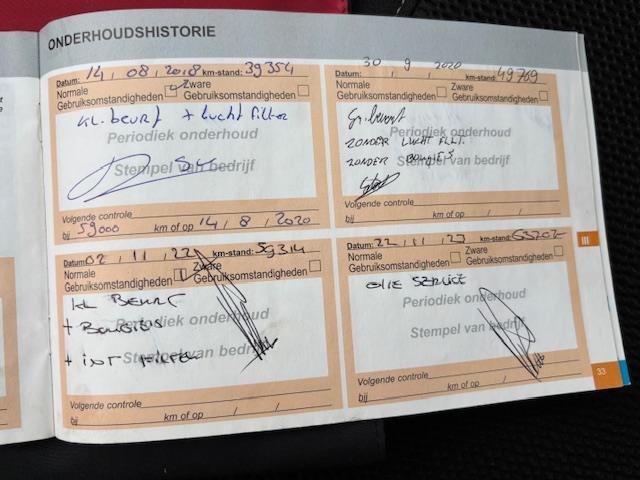 ONDERHOUDSHISTORIE
Datum: 14 / 08 / 2018 km-stand: 39354
Normale Gebruiksomstandigheden
Zware Gebruiksomstandigheden
kl. beurt + lucht filter
Periodiek onderhoud
Stempel van bedrijf
Volgende controle
bij 59000 km of op 14 / 8 / 2020
30 9 2020
Datum: / / km-stand: 49769
Normale Gebruiksomstandigheden
Zware Gebruiksomstandigheden
Gr. beurt
ZONDER LUCHT FILT.
ZONDER BOUGIES
Periodiek onderhoud
Stempel van bedrijf
Volgende controle
bij km of op / /
Datum: 02 / 11 / 22 km-stand: 59314
Normale Gebruiksomstandigheden
Zware Gebruiksomstandigheden
KL BEURT
+ BOUGIES
+ INT FILTER
Periodiek onderhoud
Stempel van bedrijf
Volgende controle
bij km of op / /
Datum: 22 / 11 / 23 km-stand:
Normale Gebruiksomstandigheden
Zware Gebruiksomstandigheden
OLIE SERVICE
Periodiek onderhoud
Stempel van bedrijf
Volgende controle
bij km of op / /
III
33